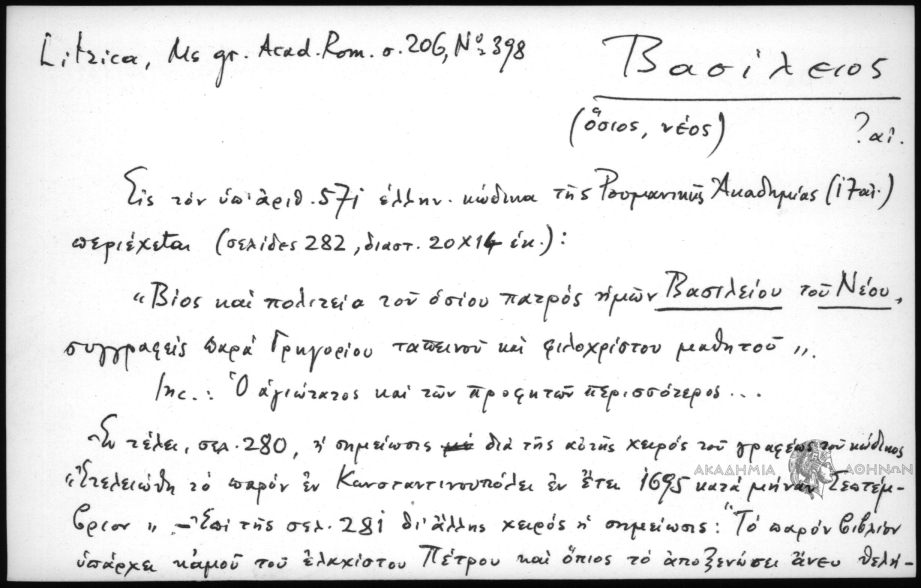 Litzica, Ms gr. Acad. Rom. σ. 206, Nº 398
Βασίλειος
(ὅσιος, νέος) ? αἰ.
Εἰς τὸν ὑπ' ἀριθ. 571 ἑλλην. κώδικα τῆς Ρουμανικῆς Ἀκαδημίας (17 αἰ.)
περιέχεται (σελίδες 282, διαστ. 20 x 14 ἑκ.):
"Βίος καὶ πολιτεία τοῦ ὁσίου πατρός ἡμῶν Βασιλείου τοῦ Νέου,
συγγραφείς παρά Γρηγορίου ταπεινοῦ καὶ φιλοχρίστου μαθητοῦ".
Inc.: Ὁ ἁγιώτατος καὶ τῶν προφητῶν περισσότερος...
Ἐν τέλει, σελ. 280, ἡ σημείωσις διά τῆς αὐτῆς χειρός τοῦ γραφέως τοῦ κώδικος
"Ἐτελειώθη τὸ παρόν ἐν Κωνσταντινουπόλει ἐν ἔτει 1695 κατά μήναν Σεπτέμ-
βριον" - Ἐπί τῆς σελ. 281 δι' ἄλλης χειρός ἡ σημείωσις: "Τὸ παρόν βιβλίον
ὑπάρχει κἀμοῦ τοῦ ἐλαχίστου Πέτρου καὶ ὅπιος τὸ ἀποξενώσει ἄνευ θελή-
ΑΚΑΔΗΜΙΑ ΑΘΗΝΩΝ